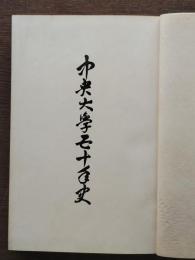 中央大學五十年史